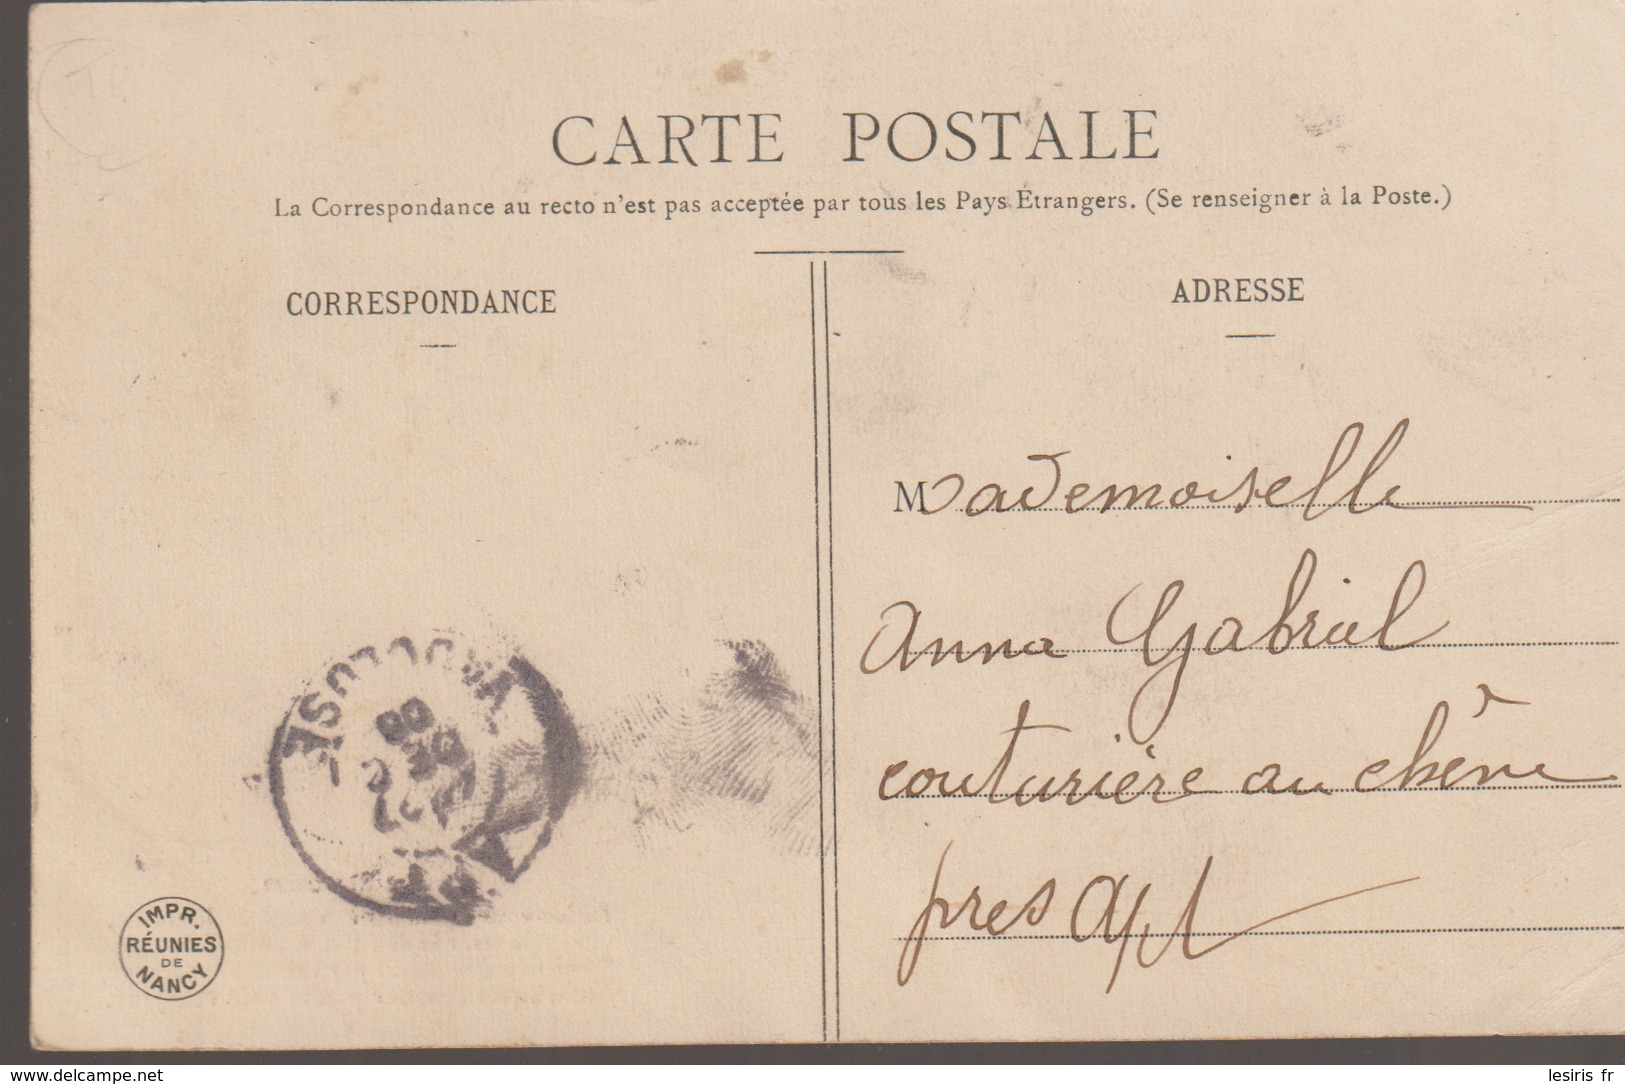 CARTE POSTALE
La Correspondance au recto n'est pas acceptée par tous les Pays Étrangers. (Se renseigner à la Poste.)
CORRESPONDANCE
ADRESSE
Mademoiselle
Anna Gabriel
couturière au chêne
près Apt
VAUCLUSE
08
APT
IMPR.
RÉUNIES
DE
NANCY
www.delcampe.net
lesiris fr